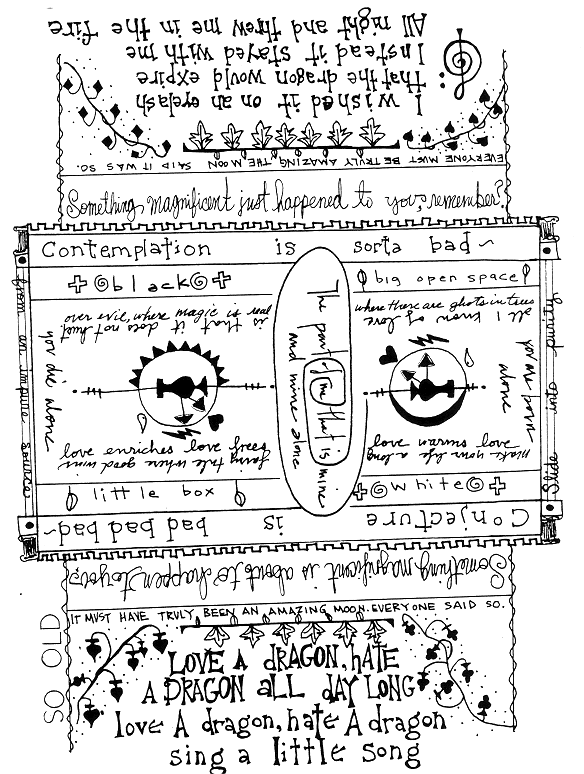 I wished it on an eyelash
That the dragon would expire
Instead it stayed with me
All night and threw me in the fire
EVERYONE MUST BE TRULY AMAZING, THE MOON SAID IT WAS SO.
Something magnificent just happened to you, remember?
Contemplation is sorta bad~
black
big open space
over evil, where magic is real
is that it does not hurt
where there are ghosts in trees
all I know of love
you die alone
you are born alone
from an impure source
Slide into purity
The part of me that is mine
and mine alone
love enriches love frees
fairy tale where good wins
love warms love
make your life a long
little box
white
Conjecture is bad bad bad bad~
Something magnificent is about to happen to you?
IT MUST HAVE TRULY BEEN AN AMAZING MOON. EVERYONE SAID SO.
SO OLD
LOVE A dRAGON, hATE
A DRAGON aLL dAY LONG
love A dragon, hate A dragon
sing a little song